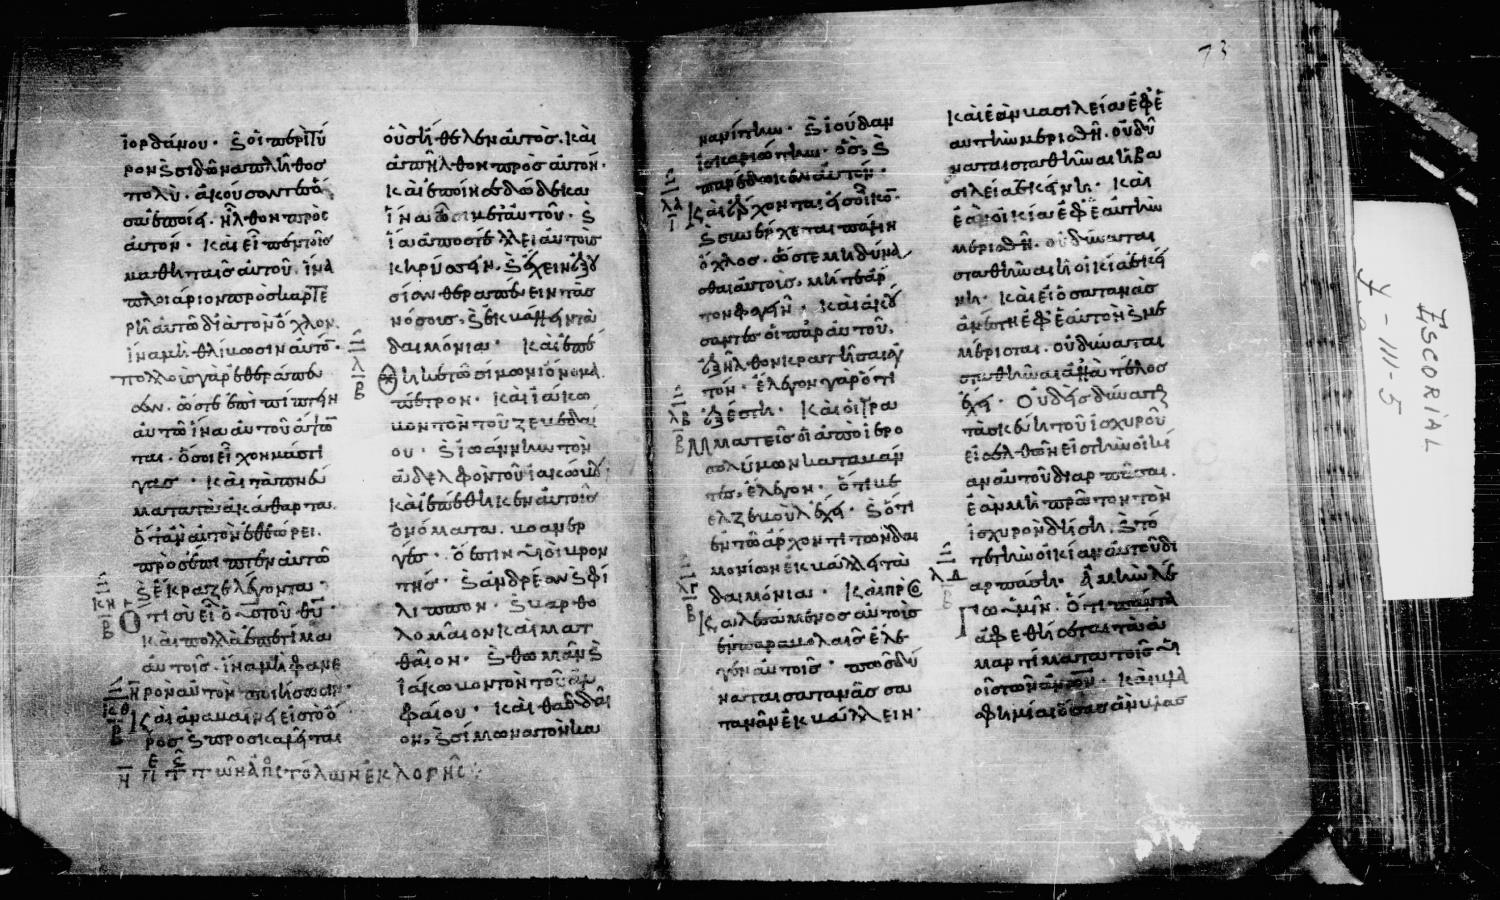 ἰορδάνου· καὶ οἱ περὶ τύ
ρον καὶ σιδῶνα πλῆθος
πολὺ· ἀκούσαντες ὅσα
ἐποίει· ἦλθον πρὸς
αὐτόν· καὶ εἶπεν τοῖς
μαθηταῖς αὐτοῦ· ἵνα
πλοιάριον προσκαρτε
ρῆ αὐτῶ διὰ τὸν ὄχλον.
ἵνα μὴ θλίβωσιν αὐτό·
πολλοὺς γὰρ ἐθεράπευ
σεν· ὥστε ἐπιπίπτειν
αὐτῶ ἵνα αὐτοῦ ἅψων
ται· ὅσοι εἶχον μάστι
γας· καὶ τὰ πνεύ
ματα τὰ ἀκάθαρτα.
ὅταν αὐτὸν ἐθεώρει.
προσέπιπτεν αὐτῶ
καὶ ἔκραζε λέγοντα·
ὅτι σὺ εἶ ὁ υἱὸς τοῦ θυ·
καὶ πολλὰ ἐπετίμα
αὐτοῖς· ἵνα μὴ φανε
ρὸν αὐτὸν ποιήσωσιν·
Καὶ ἀναβαίνει εἰς τὸ ὄ
ρος καὶ προσκαλεῖται
τῶν ἀποστόλων ἐκλογῆς
οὓς ἤθελεν αὐτὸς· καὶ
ἀπῆλθον πρὸς αὐτόν·
καὶ ἐποίησε δώδεκα
ἵνα ὦσι μετ' αὐτοῦ· καὶ
ἵνα ἀποστέλλει αὐτοὺς
κηρύσσειν· καὶ ἔχειν ἐξου
σίαν θεραπεύειν τὰς
νόσους, καὶ ἐκβάλλειν τὰ
δαιμόνια· καὶ ἐπέ
θηκε τῶ σίμωνι ὄνομα
πέτρον· καὶ ἰάκω
βον τὸν τοῦ ζεβεδαί
ου· καὶ ἰωάννην τὸν
ἀδελφὸν τοῦ ἰακώβου·
καὶ ἐπέθηκεν αὐτοῖς
ὀνόματα. βοανερ
γές· ὅ ἐστιν υἱοὶ βρον
τῆς· καὶ ἀνδρέαν καὶ φί
λιππον· καὶ βαρθο
λομαῖον καὶ ματ
θαῖον· καὶ θωμᾶν καὶ
ἰάκωβον τὸν τοῦ ἀλ
φαίου· καὶ θαδδαῖ
ον, καὶ σίμωνα τὸν κα
73
νανίτην· καὶ ἰούδαν
ἰσκαριώτην· ὃς καὶ
παρέδωκεν αὐτόν·
Καὶ ἔρχονται εἰς οἶκο·
καὶ συνέρχεται πάλιν
ὄχλος· ὥστε μὴ δύνα
σθαι αὐτοὺς, μήτε ἄρ
τον φαγεῖν· καὶ ἀκού
σαντες οἱ παρ' αὐτοῦ,
ἐξῆλθον κρατῆσαι αὐ
τόν· ἔλεγον γὰρ ὅτι
ἐξέστη· Καὶ οἱ γρα
μματεῖς οἱ ἀπὸ ἱερο
σολύμων καταβάν
τες, ἔλεγον· ὅτι βε
ελζεβοὺλ ἔχει· καὶ ὅτι
ἐν τῶ ἄρχοντι τῶν δαι
μονίων ἐκβάλλει τὰ
δαιμόνια· Καὶ προ
σκαλεσάμενος αὐτοὺς
ἐν παραβολαῖς ἔλε
γεν αὐτοῖς· πῶς δύ
ναται σατανᾶς σα
τανᾶν ἐκβάλλειν·
καὶ ἐὰν βασιλεία ἐφ' ἑ
αυτὴν μερισθῆ· οὐ δύ
ναται σταθῆναι ἡ βα
σιλεία ἐκείνη· καὶ
ἐὰν οἰκία ἐφ' ἑαυτὴν
μερισθῆ· οὐ δύναται
σταθῆναι ἡ οἰκία ἐκεί
νη· καὶ εἰ ὁ σατανᾶς
ἀνέστη ἐφ' ἑαυτὸν καὶ με
μέρισται· οὐ δύναται
σταθῆναι ἀλλὰ τέλος
ἔχει· Οὐδεὶς δύναται
τὰ σκεύη τοῦ ἰσχυροῦ
εἰσελθὼν εἰς τὴν οἰκί
αν αὐτοῦ διαρπάσαι.
ἐὰν μὴ πρῶτον τὸν
ἰσχυρὸν δήση· καὶ τό
τε τὴν οἰκίαν αὐτοῦ δι
αρπάση· Ἀμὴν λέ
γω ὑμῖν· ὅτι πάντα
ἀφεθήσεται τὰ ἁ
μαρτήματα τοῖς υἱ
οῖς τῶν ἀνων· καὶ βλα
σφημίαι ὅσας ἂν βλασ
ESCORIAL
Y-III-5